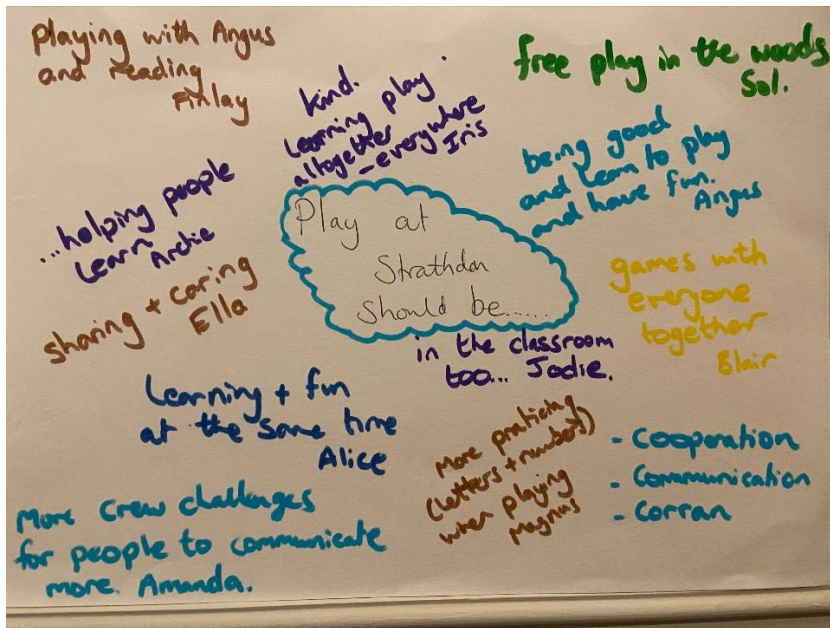 Playing with Angus
and reading
Finlay
kind.
Learning play.
altogether
- everywhere
Iris
free play in the woods
Sol.
being good
and learn to play
and have fun.
Angus
...helping people
learn
Archie
Play at
Strathdon
should be......
sharing + caring
Ella
games with
everyone
together
Blair
in the classroom
too... Jodie.
Learning + fun
at the same time
Alice
More praticing
(letters + numbers)
when playing
Magnus
- Cooperation
- Communication
- Corran
More Crew challenges
for people to communicate
more Amanda.